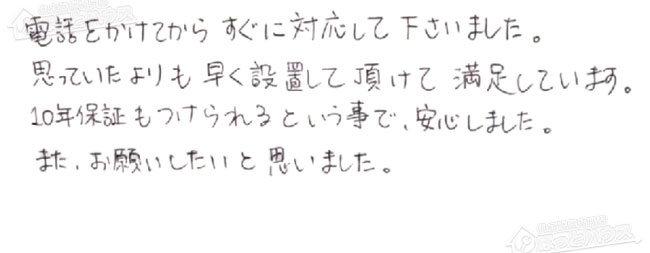 電話をかけてから すぐに対応して下さいました。
思っていたよりも 早く設置して頂けて 満足しています。
10年保証もつけられるという事で、安心しました。
また、お願いしたいと思いました。